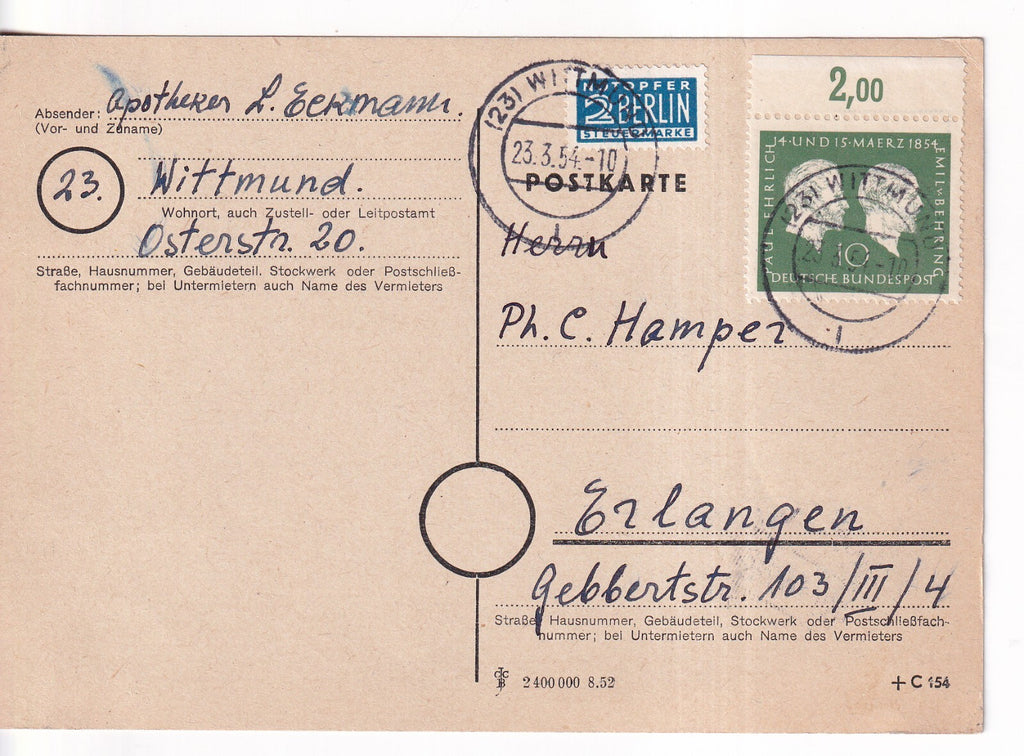 Absender: Apotheker L. Eckmann.
(Vor- und Zuname)
23. Wittmund.
Wohnort, auch Zustell- oder Leitpostamt
Osterstr. 20.
Straße, Hausnummer, Gebäudeteil. Stockwerk oder Postschließ-
fachnummer; bei Untermietern auch Name des Vermieters
NOTOPFER
2 BERLIN
STEUERMARKE
(23) WITTMUND
23.3.54.-10
POSTKARTE
2,00
14·UND 15·MAERZ 1854
PAUL EHRLICH
EMIL v. BEHRING
10
DEUTSCHE BUNDESPOST
(23) WITTMUND
Herrn
Ph. C. Hamper
Erlangen
Gebbertstr. 103/III/4
Straße, Hausnummer, Gebäudeteil, Stockwerk oder Postschließfach-
nummer; bei Untermietern auch Name des Vermieters
2 400 000 8.52
+ C 154